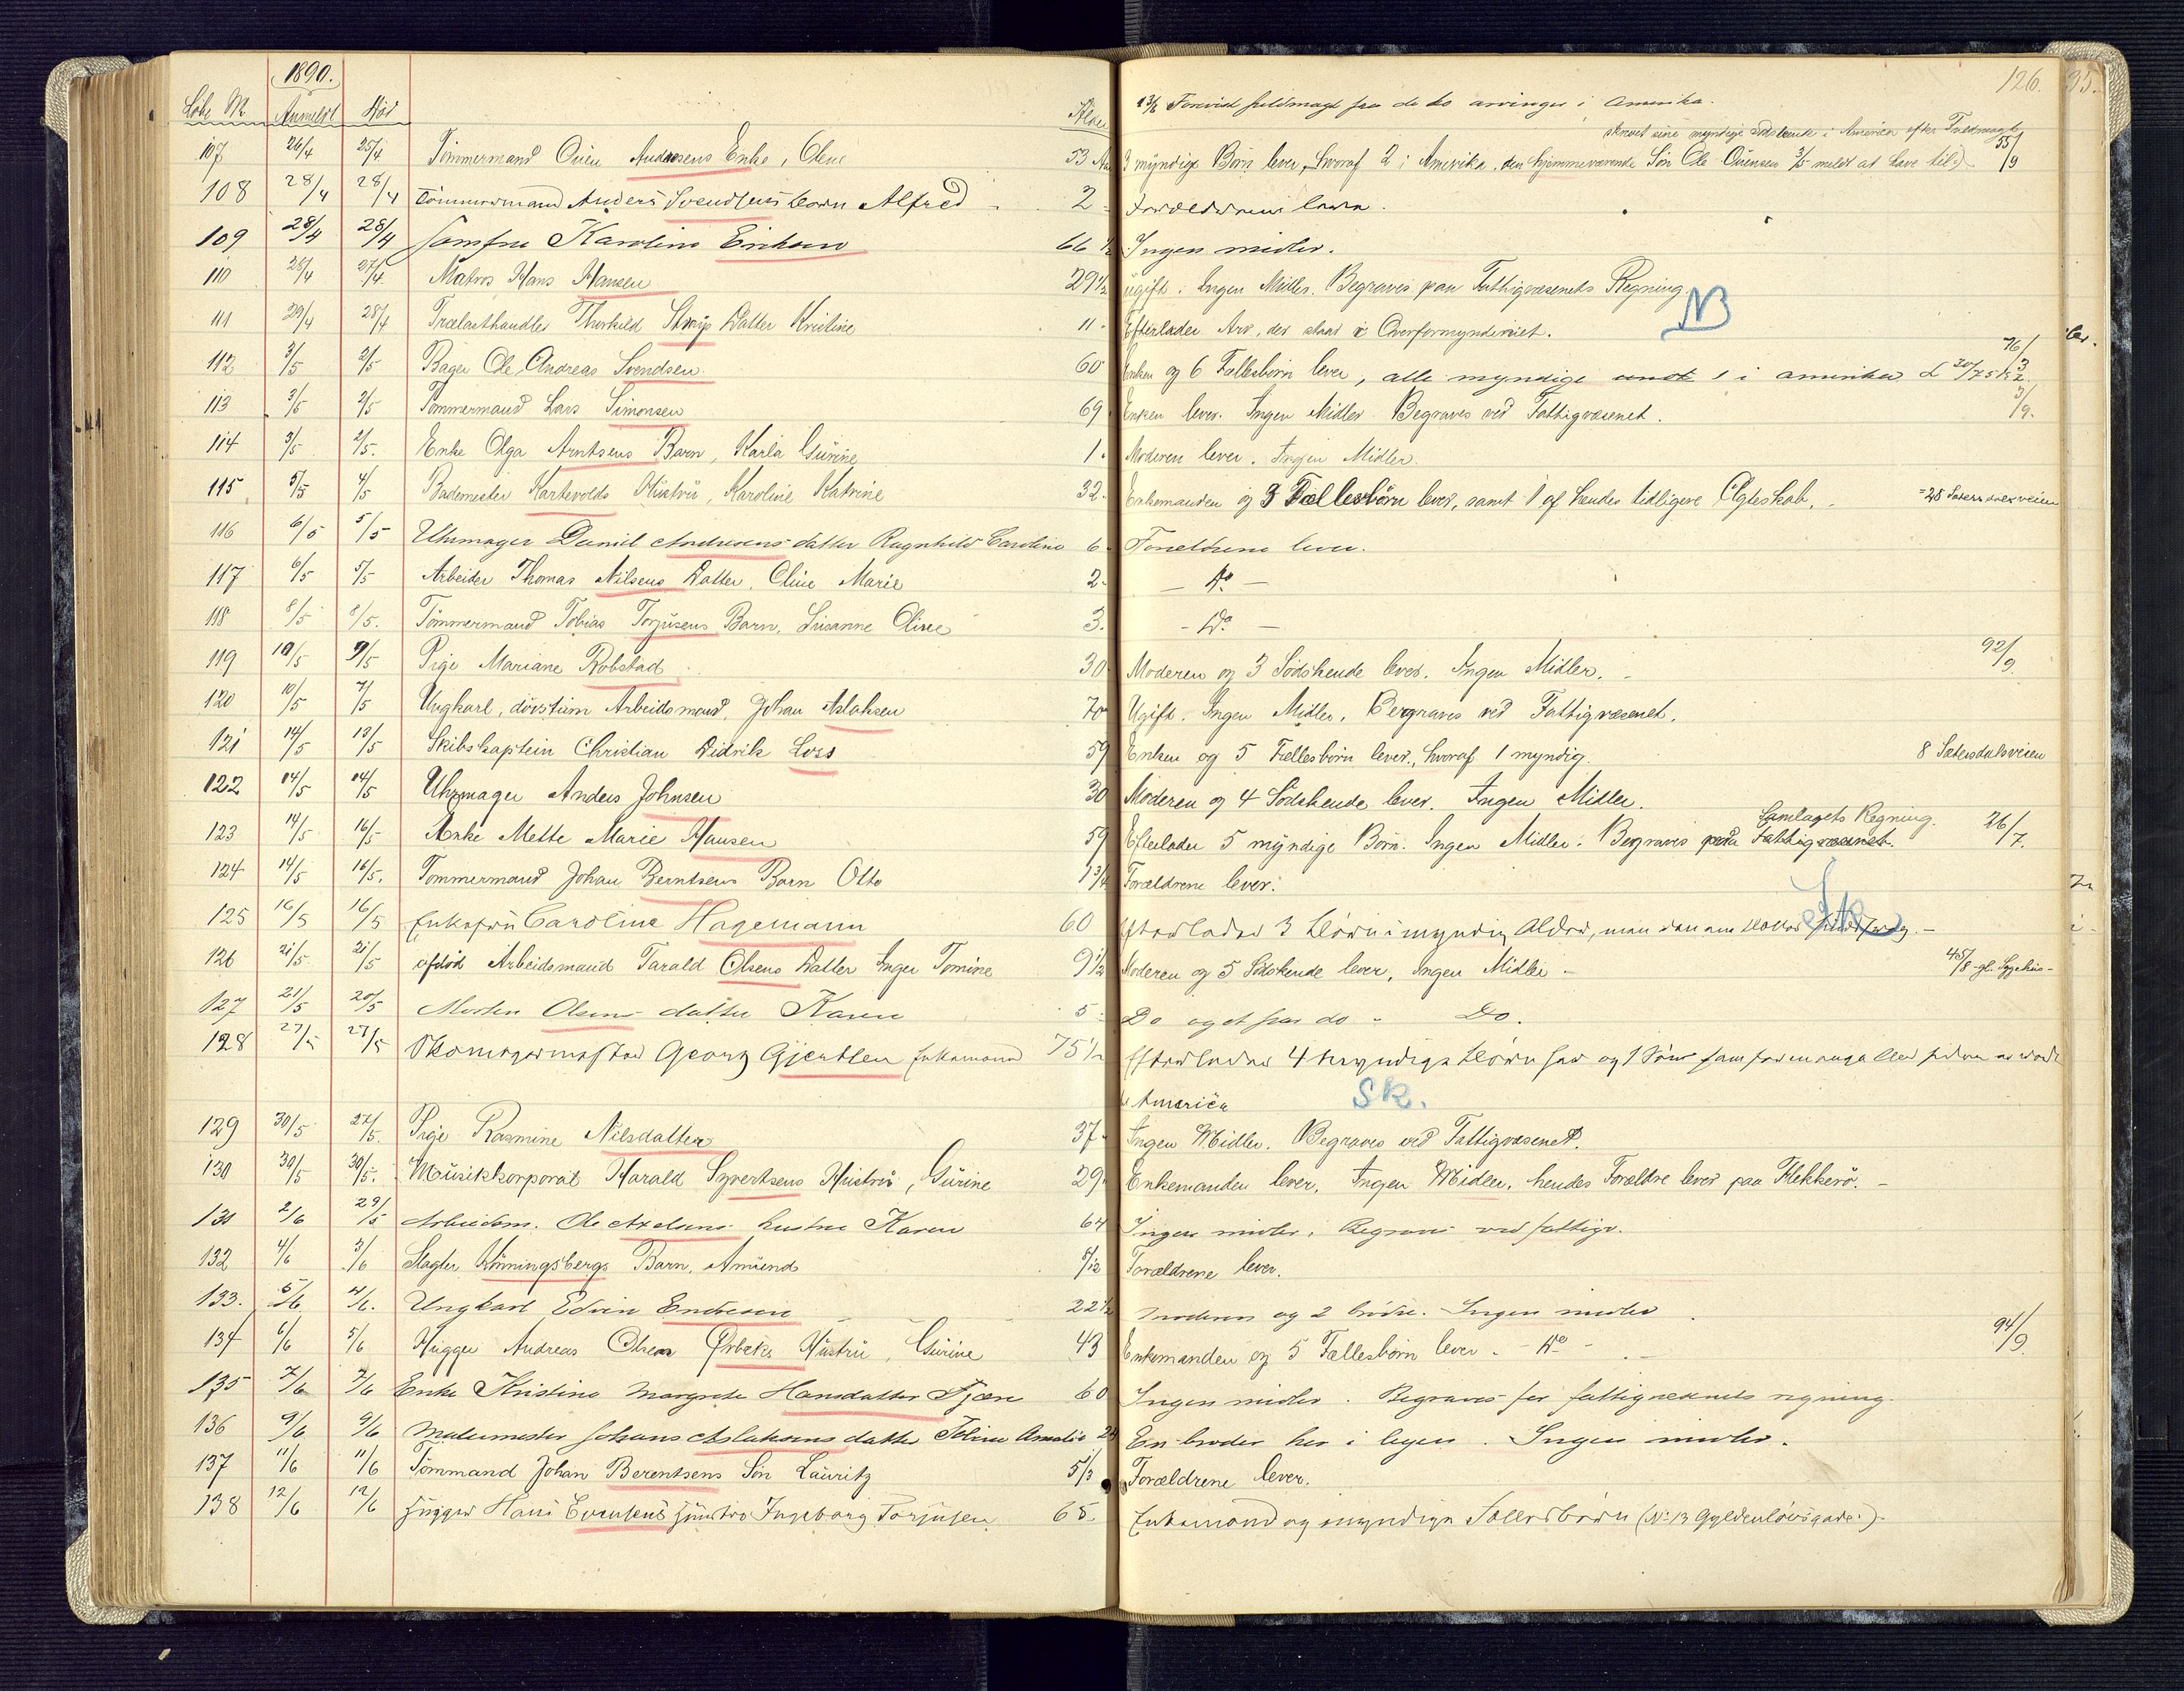 1890.
126.
Løbe № Anmeldt Død Alder
13/6 Forevist fuldmagt fra de to arvinger i Amerika.
skrevet sine myndige Sødskende i America efter Fuldmagt
107 26/4 25/4 Tømmermand Ouen Andersens Enke, Olene 53 Aar 3 myndige Børn lever, hvoraf 2 i Amerika, den hjemmeværende Søn Ole Ouensen 3/5 meldt at have til 55/9
108 28/4 28/4 Tømmermand Anders Svendsens barn Alfred 2 Forældrene leve.
109 28/4 28/4 Jomfru Karoline Eriksen 66 1/2 Ingen midler.
110 28/4 27/4 Matros Hans Hansen 29 1/2 ugift. Ingen Midler. Begraves paa Fattigvæsenets Regning.
NB
111 29/4 28/4 Trælasthandler Thorkild Datter Kristine 11 Efterlader Arv, der staar i Overformynderiet.
112 3/5 2/5 Bager Ole Andreas Svendsen 60 Enken og 6 Fællesbørn lever, alle myndige 1 i amerika 76/3
113 3/5 2/5 Tømmermand Lars Simonsen 69 Enken lever. Ingen Midler. Begraves ved Fattigvæsenet. 3/9.
114 3/5 2/5. Enke Olga Arntsens Barn, Karla Gurine 1. Moderen lever. Ingen Midler.
115 5/5 4/5 Bademester Kartevolds Hustru, Karoline Katrine 32. Enkemanden og 3 Fællesbørn lever, samt 1 af hendes tidligere Ægteskab.
116 6/5 5/5 Uhrmager Daniel Andresens datter Ragnhild Caroline 6 Forældrene lever.
117 6/5 5/5 Arbeider Thomas Nilsens Datter, Oline Marie 2. - Do -
118 8/5 8/5. Tømmermand Tobias Torjusens Barn, Susanne Oline 3. - Do. -
119 10/5 9/5 Pige Mariane Robstad 30 Moderen og 3 Sødskende lever. Ingen Midler. 92/9.
120 10/5 7/5 Ungkarl, døvstum Arbeidsmand, Johan Aslaksen 70 Ugift. Ingen Midler, Bergraves ved Fattigvæsenet.
121 14/5 13/5 Skibskaptein Christian Didrik Loss 59 Enken og 5 Fællesbørn lever, hvoraf 1 myndig. 8 Sætersdalsveien
122 14/5 14/5 Uhrmager Anders Johnsen 30 Moderen og 4 Sødskende lever. Ingen Midler.
Samlagets Regning.
123 14/5 16/5 Enke Mette Marie Hansen 59 Efterlader 5 myndige Børn. Ingen Midler. Begraves paa Fattigvæsenet. 26/7.
124 14/5 16/5. Tømmermand Johan Berntsens Barn Otto 1 3/4 Forældrene lever.
125 16/5 16/5 Enkefru Caroline Hagemann 60 Efterlader 3 Børn i myndig Alder, men
126 21/5 21/5 afdød Arbeidsmand Tarald Olsens Datter Inger Tomine 9 1/2 Moderen og 5 Sødskende lever, Ingen Midler - 45/8 gl. Sygehus-
127 21/5 20/5 Morten Olsens datter Karen 5 Do og et par do - Do.
128 27/5 27/5 Skomagermester Georg Gjertsen Enkemand 75 1/2 Efterlader 4 myndige Børn her og 1 Søn som for mange Aar siden er reist
til America
SK.
129 30/5 27/5. Pige Rasmine Nilsdatter 37 Ingen Midler. Begraves ved Fattigvæsenet.
130 30/5 30/5. Musikkorporal Harald Syvertsens Hustru, Gurine 29 Enkemanden lever, Ingen Midler, hendes Forældre lever paa Flekkerø. -
131 2/6 29/5 Arbeidsm. Ole Axelsens hustru Karen 64 Ingen midler, Begraves ved fattigv.
132 4/6 3/6 Slagter Kønningsbergs Barn, Amund 5/12 Forældrene lever.
133. 5/6 4/6. Ungkarl Edvin Endresen 22 1/2 moderen og 2 brødre. Ingen midler.
134 6/6 5/6 Hugger Andreas Olsens Ørbæks Hustru, Gurine 43 Enkemanden og 5 Fællesbørn lever. - Do - 94/9.
135 7/6 7/6 Enke Kristine Margrete Hansdatter Fjære 60 Ingen midler. Begraves for fattigvæsnets regning.
136 9/6 9/6 Malermester Johans Aslaksens datter Amalie 24 En broder her i byen. Ingen midler.
137 11/6 11/6 Tømmand Johan Berentsens Søn Lauritz 5/3 Forældrene lever.
138 12/6 12/6 Hugger Hans Evensens Hustru Ingeborg Torjusen 65. Enkemand og myndige Fællesbørn (N: 13 Gyldenløvsgade.)